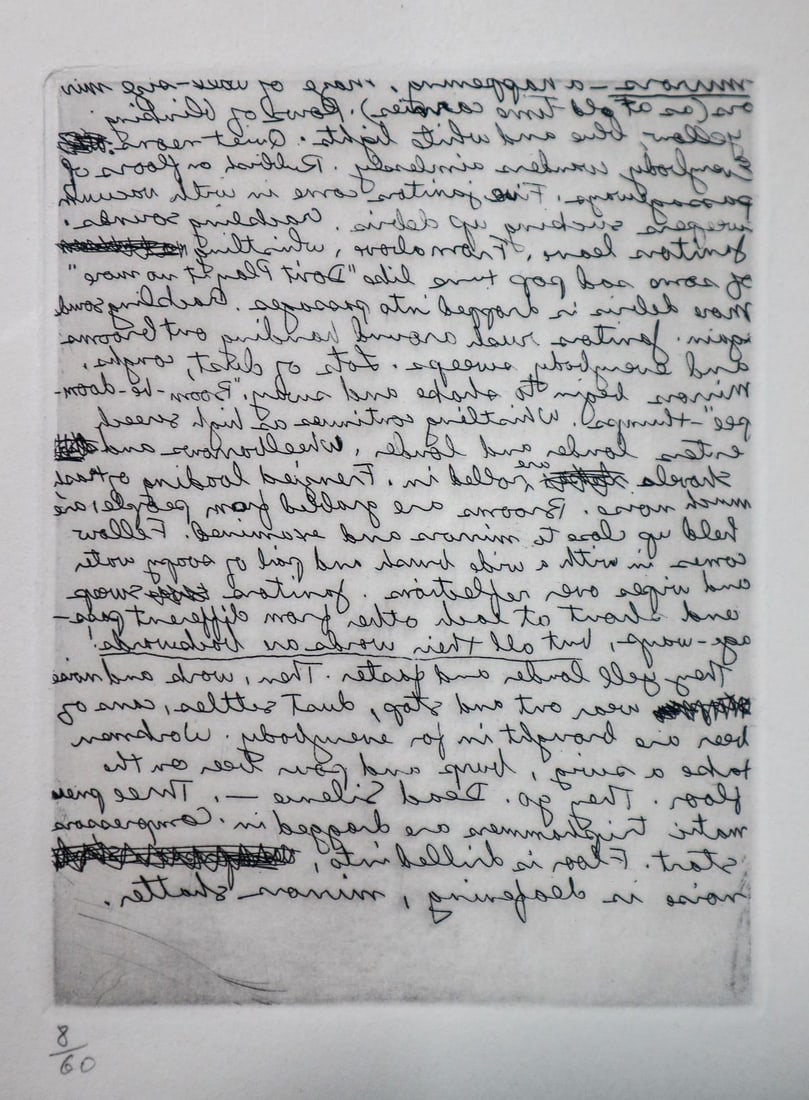 mirrors – a happening. maze of wall-size mirr
ors (as at old time carnies). Rows of blinking
yellow, blue and white lights. Quiet neons.
Everybody wanders aimlessly. Rubbish on floors of
passageways. Five janitors come in with vacuum
sweepers sucking up debris. Crackling sounds.
Janitors leave. From above, whistling
of some sad pop tune like "Don't Play it no more"
More debris is dropped into passages. Crackling sound
again. Janitors rush around handing out brooms
and everybody sweeps. Lots of dust, coughs.
Mirrors begin to shake and sway. "Boom-be-doom-
pee"-thumps. Whistling continues as high screech
enters louder and louder. Wheelbarrows and
shovels are rolled in. Frenzied loading of trash
much noise. Brooms are grabbed from people; are
held up close to mirrors and examined. Fellow
comes in with a wide brush and pail of soapy water
and wipes over reflections. Janitors sweep
and shout at each other from different pass-
age-ways, but all their words are backwards!
They yell louder and faster. Then, work and noise
wear out and stop, dust settles, cans of
beer are brought in for everybody. Workmen
take a swig, burp and pour beer on the
floor. They go. Dead Silence –. Three pneu
matic triphammers are dragged in. Compressors
start. Floor is drilled into,
noise is deafening, mirrors shatter.
8/60